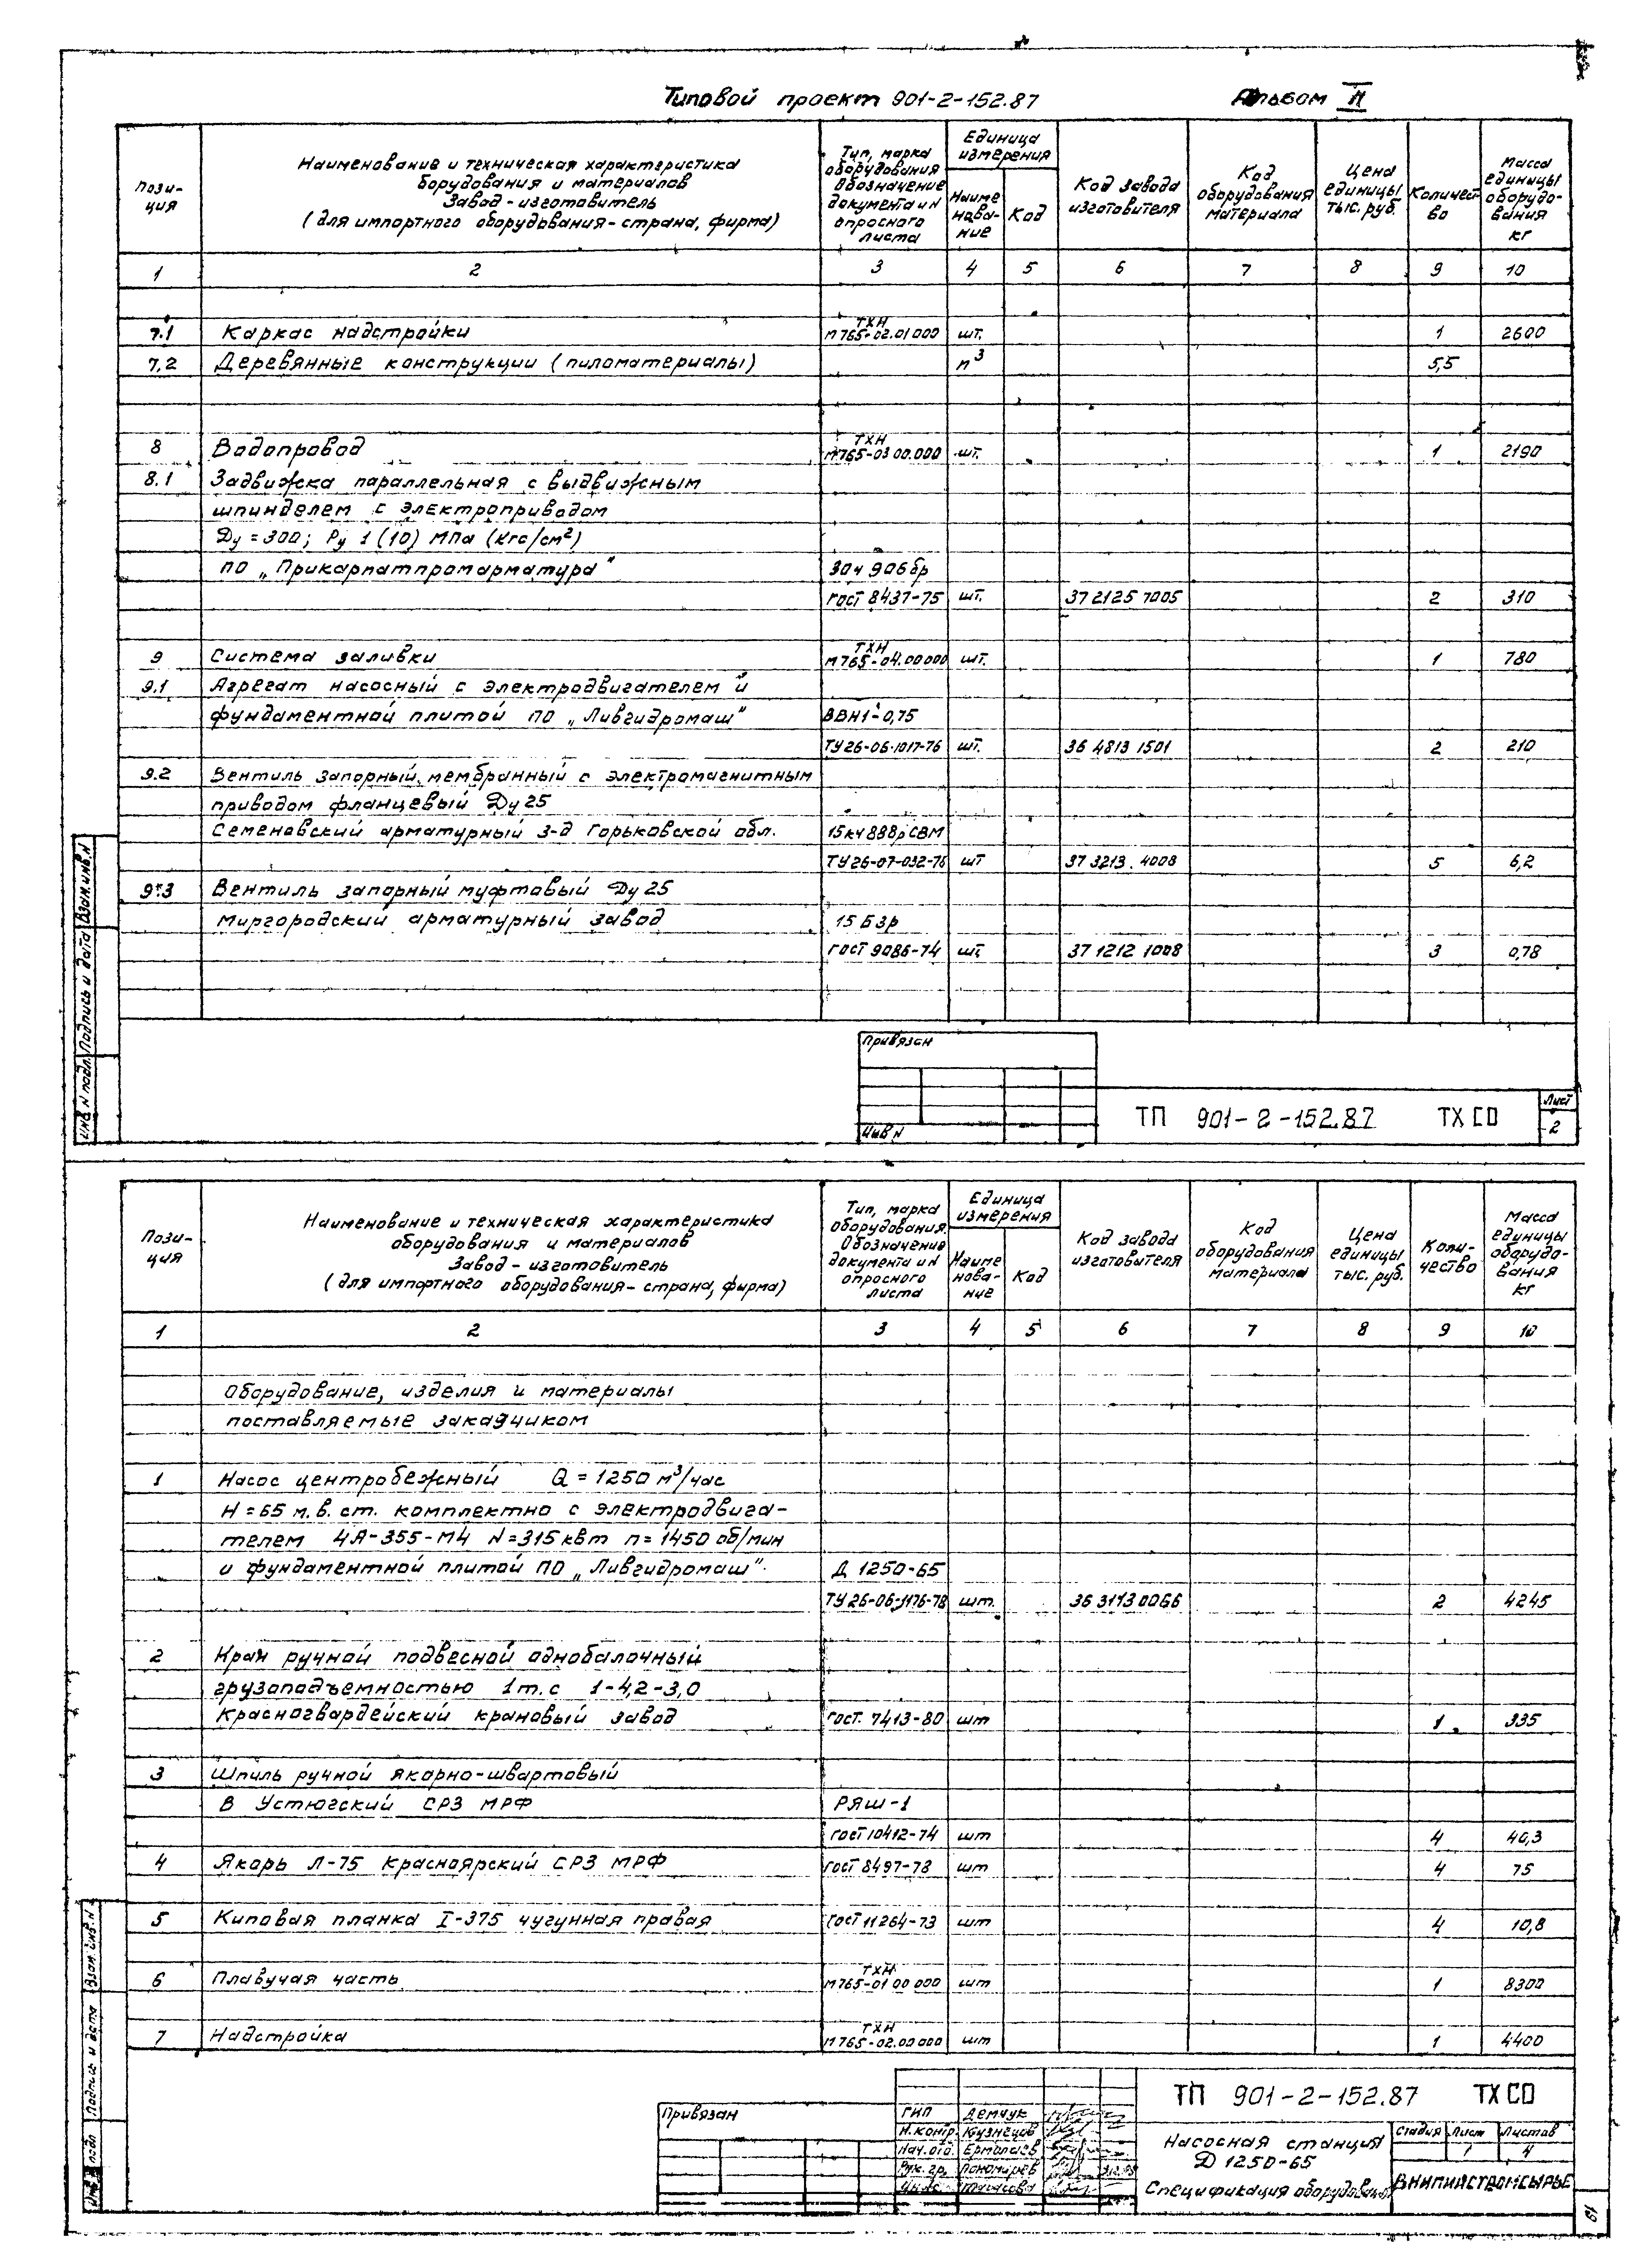 Типовой проект 901-2-152.87 Альбом II
Пози-
ция
Наименование и техническая характеристика
борудования и материалов
Завод-изготовитель
(для импортного оборудования-страна, фирма)
Тип, марка
оборудования
Обозначение
документа и N
опросного
листа
Единица
измерения
Наиме
нова-
ние
Код
Код завода
изготовителя
Код
оборудования
материала
Цена
единицы
тыс. руб.
Количест-
во
Масса
единицы
оборудо-
вания
кг
1 2 3 4 5 6 7 8 9 10
ТХН
7.1 Каркас надстройки М765-02.01000 шт. 1 2600
7.2 Деревянные конструкции (пиломатериалы) м³ 5,5
ТХН
8 Водопровод М765-03 00.000 шт. 1 2190
8.1 Задвижка параллельная с выдвижным
шпинделем с электроприводом
Ду=300; Ру 1 (10) МПа (кгс/см²)
ПО „Прикарпатпромарматура" 30ч 906бр
ГОСТ 8437-75 шт. 37 2125 7005 2 310
ТХН
9 Система заливки М765-04.00000 шт. 1 780
9.1 Агрегат насосный с электродвигателем и
фундаментной плитой ПО „Ливгидромаш" ВВН1-0,75
ТУ26-06-1017-76 шт. 36 4813 1501 2 210
9.2 Вентиль запорный мембранный с электромагнитным
приводом фланцевый Ду 25
Семеновский арматурный з-д Горьковской обл. 15кч 888р СВМ
ТУ26-07-032-76 шт 37 3213. 4008 5 6,2
9.3 Вентиль запорный муфтовый Ду 25
Миргородский арматурный завод 15 Б 3р
ГОСТ 9086-74 шт. 37 1212 1008 3 0,78
Инв N подл. Подпись и дата Взам.инв.N
Привязан
Инв N
ТП 901-2-152.87 ТХ СО
Лист
2
Пози-
ция
Наименование и техническая характеристика
оборудования и материалов
Завод-изготовитель
(для импортного оборудования-страна, фирма)
Тип, марка
оборудования.
Обозначение
документа и N
опросного
листа
Единица
измерения
Наиме
нова-
ние
Код
Код завода
изготовителя
Код
оборудования
материала
Цена
единицы
тыс. руб.
Коли-
чество
Масса
единицы
оборудо-
вания
кг
1 2 3 4 5 6 7 8 9 10
Оборудование, изделия и материалы
поставляемые заказчиком
1 Насос центробежный Q = 1250 м³/час
Н=65 м.в.ст. комплектно с электродвига-
телем 4А-355-М4 N=315 квт n=1450 об/мин
и фундаментной плитой ПО „Ливгидромаш". Д 1250-65
ТУ26-06-1176-78 шт. 36 3113 0066 2 4245
2 Кран ручной подвесной однобалочный
грузоподъемностью 1т. с 1-4,2-3,0
Красногвардейский крановый завод ГОСТ. 7413-80 шт 1 335
3 Шпиль ручной якорно-швартовый
В Устюгский СРЗ МРФ РЯШ-1
ГОСТ 10412-74 шт 4 40,3
4 Якорь Л-75 Красноярский СРЗ МРФ ГОСТ 8497-78 шт 4 75
5 Киповая планка I-375 чугунная правая ГОСТ 11264-73 шт 4 10,8
ТХН
6 Плавучая часть М765-01 00 000 шт 1 8300
ТХН
7 Надстройка М765-02.00 000 шт 1 4400
подл Подпись и дата Взам. инв. N
Привязан
ГИП Демчук
Н.контр. Кузнецов
Нач.отд. Ермолаев
Рук. гр. Пономарев
ТП 901-2-152.87 ТХ СО
Насосная станция
Д 1250-65
Спецификация оборудования
Стадия Лист Листов
1 4
ВНИПИИСТРОМСЫРЬЕ
19